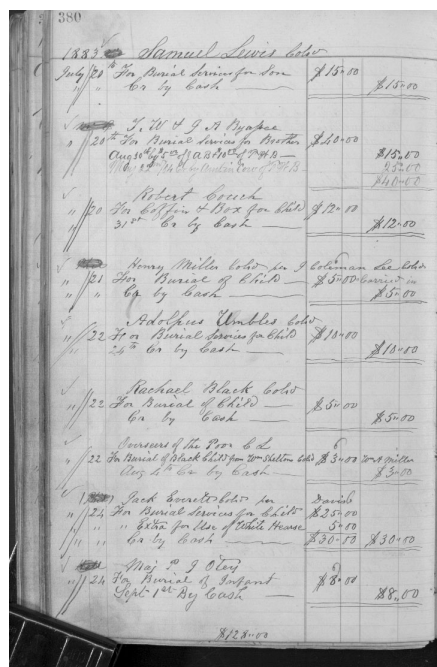 380
1883 Samuel Lewis Cold
July 20th For Burial Services for Son $15.00
" " Cr by Cash $15.00
T. W & G A
" 20th For Burial Services for Brother $40.00
Aug 30th by $15.00
25.00
$40.00
Robert Couch
" 20 For Coffin & Box for Child $12.00
" 31st Cr by Cash $12.00
Henry Miller Cold per J Coleman Lee Cold
" 21 For Burial of Child $5.00 Carried in
" " Cr by Cash $5.00
Adolphus Umbles Cold
" 22 For Burial Services for Child $18.00
" 24th Cr by Cash $18.00
Rachael Black Cold
" 22 For Burial of Child $5.00
" Cr by Cash $5.00
Overseers of the Poor C L
" 22 For Burial of Black Child from Wm Shelton Cold $3.00 Wm A Miller
Aug 4th Cr by Cash $3.00
Jack Everett Cold per David
" 24 For Burial Services for Child $25.00
" " " Extra for Use of White Hearse 5.00
" " Cr by Cash $30.00 $30.00
Maj P J Otey
" 24 For Burial of Infant $8.00
Sept 1st By Cash $8.00
$128.00